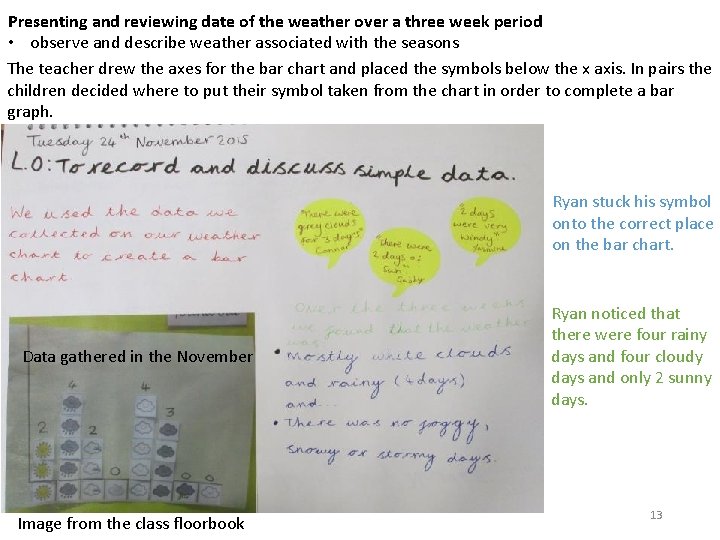 Presenting and reviewing date of the weather over a three week period
• observe and describe weather associated with the seasons
The teacher drew the axes for the bar chart and placed the symbols below the x axis. In pairs the
children decided where to put their symbol taken from the chart in order to complete a bar
graph.
Tuesday 24th November 2015
L.O: To record and discuss simple data.
We used the data we
collected on our weather
chart to create a bar
chart.
"There were
grey clouds
for 3 days"
Connor
"There were
2 days of
Sun"
"2 days
were very
windy"
Jasmine
Ryan stuck his symbol
onto the correct place
on the bar chart.
Over the three weeks
we found that the weather
was:
• Mostly white clouds
and rainy (4 days)
and...
• There was no foggy,
snowy or stormy days.
Ryan noticed that
there were four rainy
days and four cloudy
days and only 2 sunny
days.
Data gathered in the November
2 4 2 0 4 3 0 0
Image from the class floorbook
13